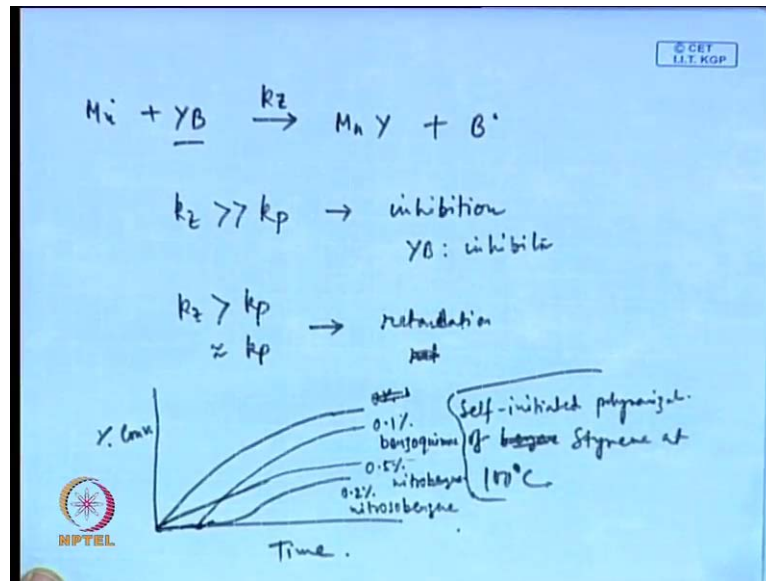 © CET
I.I.T. KGP
Mṅ + YB kz → Mn Y + B•
kz >> kp → inhibition
YB: inhibitor
kz > kp → retardation
≈ kp
% Conv
0.1%
benzoquinone
0.5%
nitrobenzene
0.2%
nitrosobenzene
Self-initiated polymerizat.
of Styrene at
100°C
Time.
NPTEL